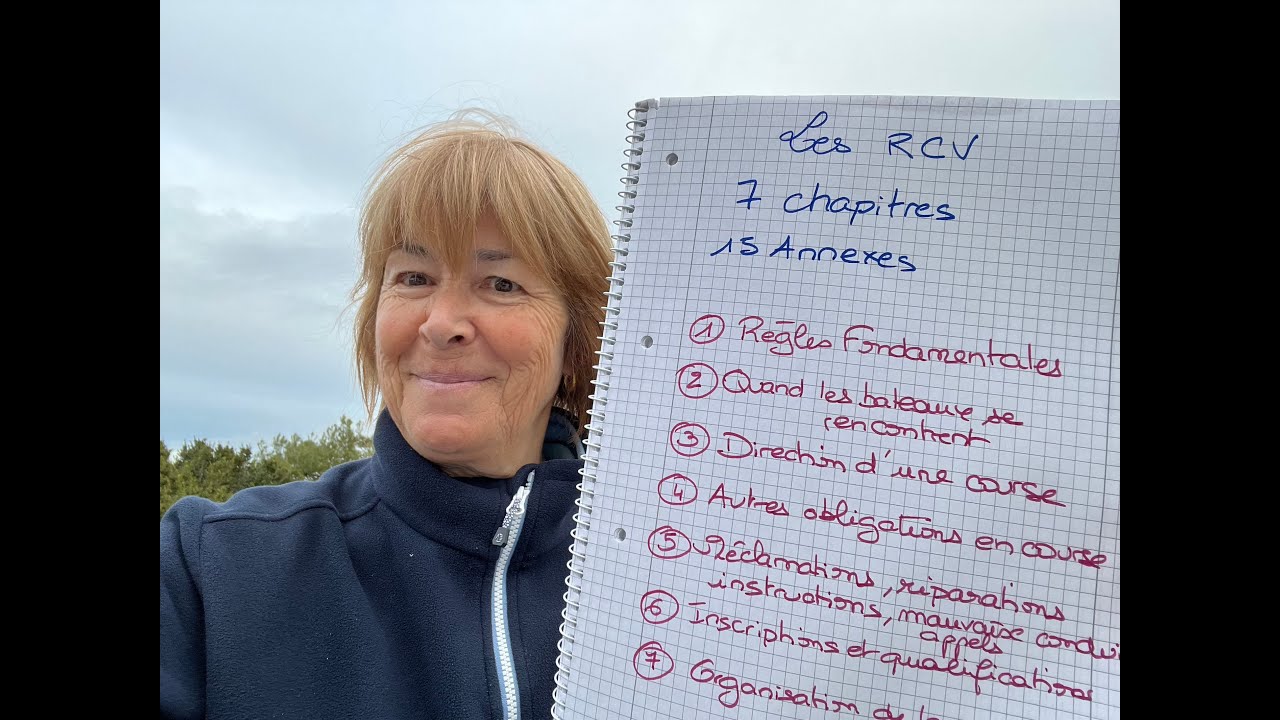 Les RCV
7 chapitres
15 Annexes
1 Règles Fondamentales
2 Quand les bateaux se
rencontrent
3 Direction d'une course
4 Autres obligations en course
5 Réclamations, réparations
instructions, mauvaise condui
appels
6 Inscriptions et qualifications
7 Organisation de la